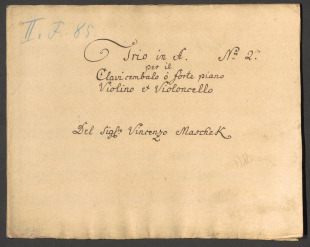 II. F. 85.
Trio in A. No. 2.
per il
Clavicembalo ó forte piano
Violino et Violoncello
Del Sigr. Vincenzo Maschek